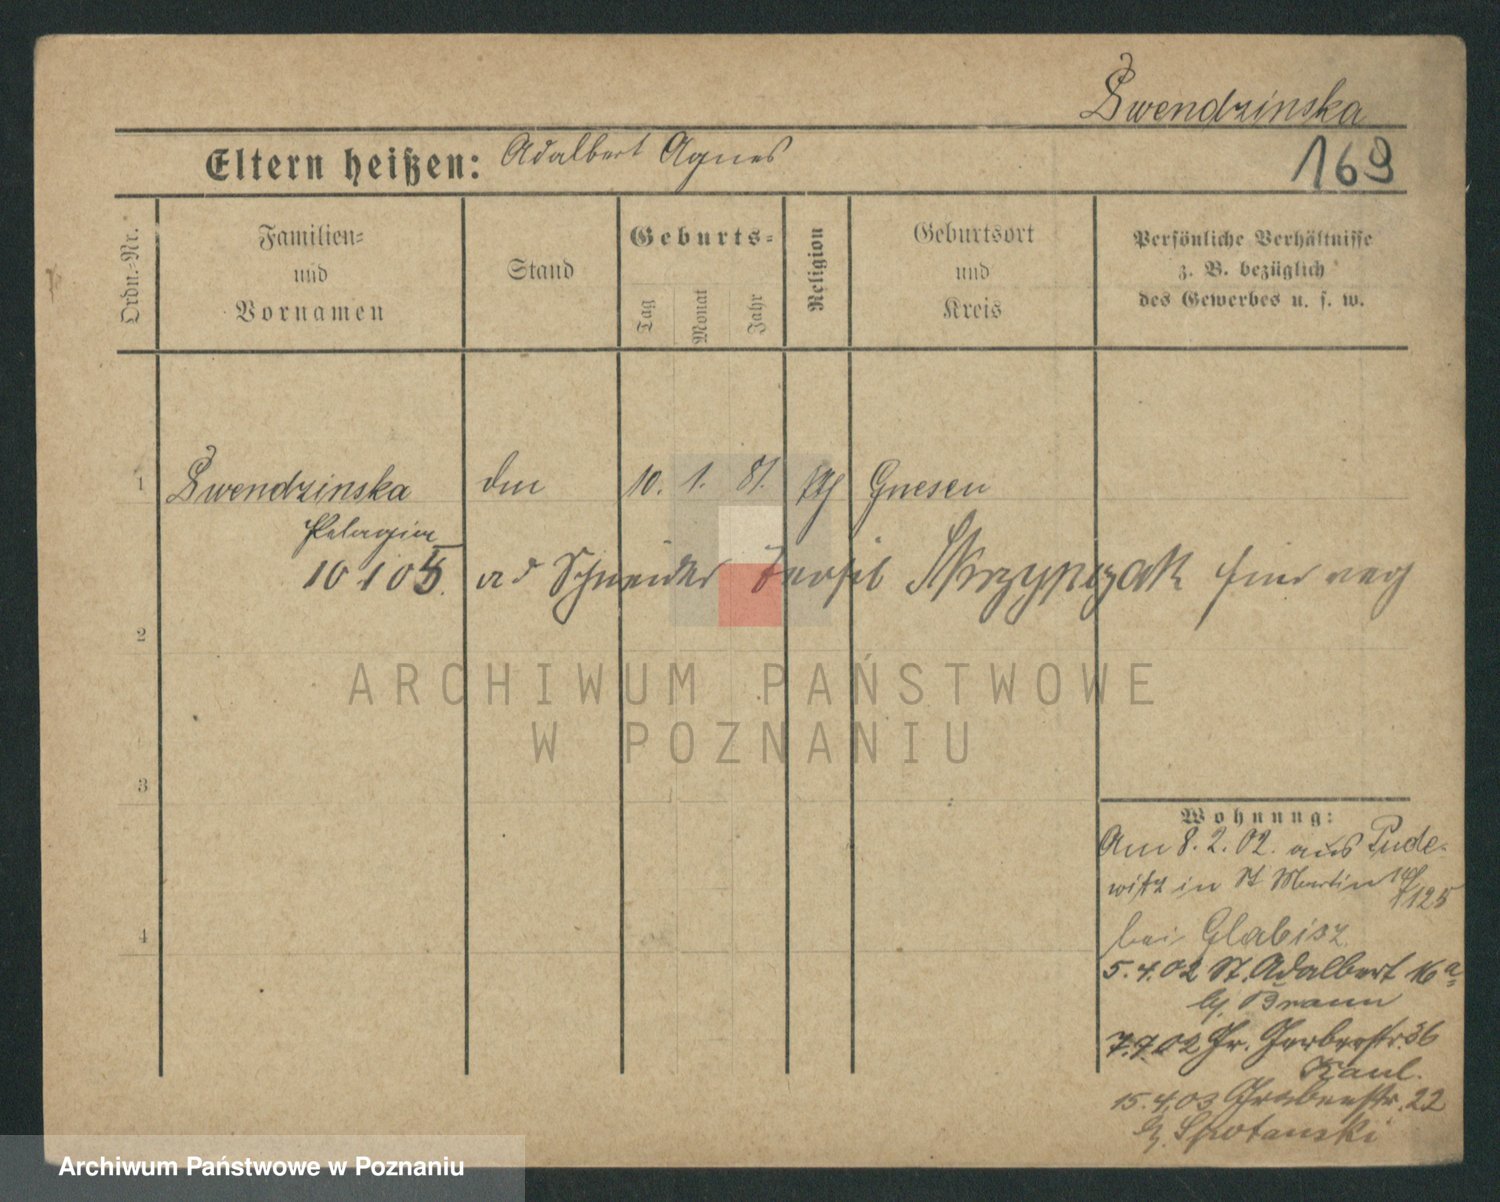 Swendzinska
Eltern heißen: Adalbert Agnes
169
Ordn.-Nr.
Familien-
und
Vornamen
Stand
Geburts-
Tag
Monat
Jahr
Religion
Geburtsort
und
Kreis
Persönliche Verhältnisse
z. B. bezüglich
des Gewerbes u. s. w.
1 Swendzinska 10. 1. 81. Gnesen
Pelagia
10 10 5 Schneider Skrzypczak
2
ARCHIWUM PAŃSTWOWE
W POZNANIU
3
4
Wohnung:
Am 8. 2. 02. aus Pude-
witz in St Martin
bei Glabisz
5. 4. 02 St. Adalbert 16a
bj. Braun
7.7.02 Gr. Gerberstr. 36
Kaul.
15. 4. 03 Grabenstr. 22
Spotanski
Archiwum Państwowe w Poznaniu